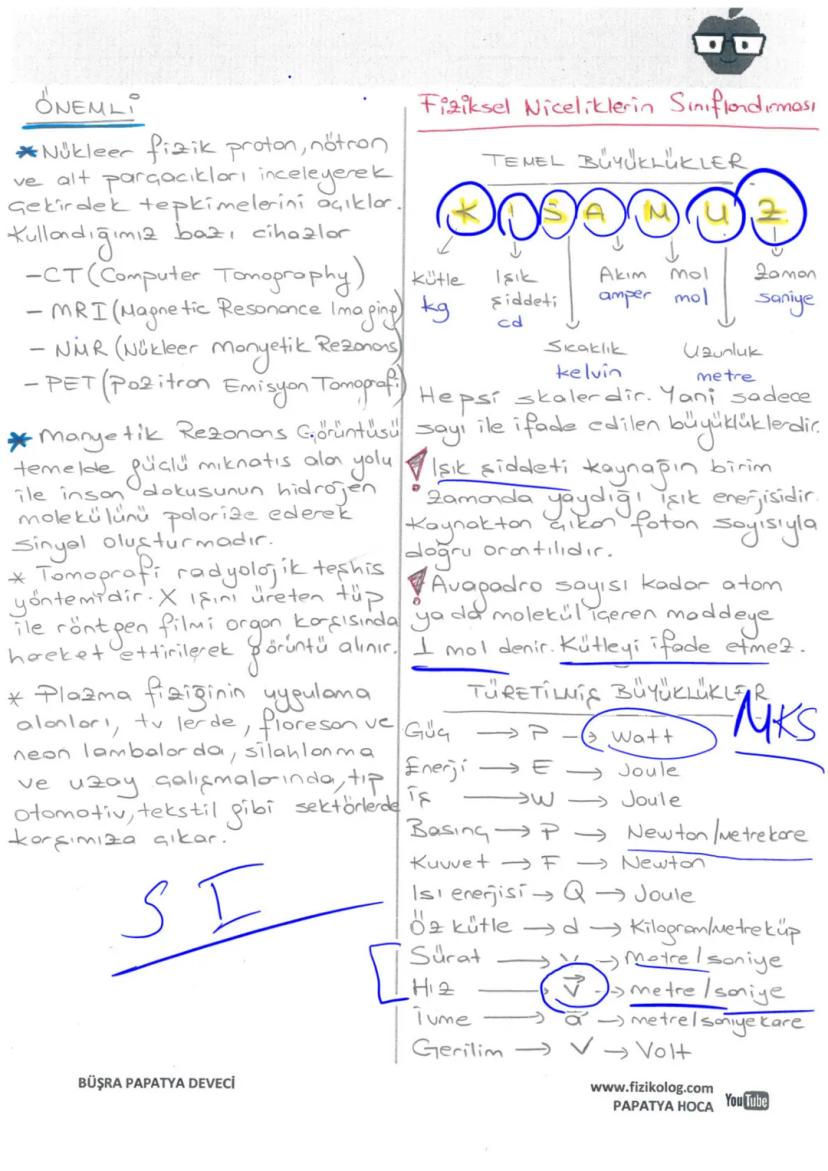 ÖNEMLİ
* Nükleer fizik proton, nötron
ve alt parçacıkları inceleyerek
çekirdek tepkimelerini açıklar.
Kullandığımız bazı cihazlar
-CT (Computer Tomography)
- MRI (Magnetic Resonance Imaging)
- NMR (Nükleer Manyetik Rezonans)
- PET (Pozitron Emisyon Tomografi)
* Manyetik Rezonans Görüntüsü
temelde güçlü mıknatıs alan yolu
ile insan dokusunun hidrojen
molekülünü polarize ederek
sinyal oluşturmadır.
* Tomografi radyolojik teşhis
yöntemidir. X ışını üreten tüp
ile röntgen filmi organ karşısında
hareket ettirilerek görüntü alınır.
* Plazma fiziğinin uygulama
alanları, tv lerde, floresan ve
neon lambalarda, silahlanma
ve uzay çalışmalarında, tıp
otomotiv, tekstil gibi sektörlerde
karşımıza çıkar.
SI
Fiziksel Niceliklerin Sınıflandırması
TEMEL BÜYÜKLÜKLER
K I S A M U Z
Kütle Işık Akım Mol Zaman
kg şiddeti amper mol saniye
cd
Sıcaklık Uzunluk
kelvin metre
Hepsi skalerdir. Yani sadece
sayı ile ifade edilen büyüklüklerdir.
! Işık şiddeti kaynağın birim
zamanda yaydığı ışık enerjisidir.
Kaynaktan çıkan foton sayısıyla
doğru orantılıdır.
! Avagadro sayısı kadar atom
ya da molekül içeren maddeye
1 mol denir. Kütleyi ifade etmez.
TÜRETİLMİŞ BÜYÜKLÜKLER
MKS
Güç → P → Watt
Enerji → E → Joule
İş → W → Joule
Basınç → P → Newton/Metrekare
Kuvvet → F → Newton
Isı enerjisi → Q → Joule
Öz kütle → d → Kilogram/Metreküp
Sürat → V → Metre/saniye
Hız → V⃗ → metre/saniye
İvme → a⃗ → metre/saniyekare
Gerilim → V → Volt
BÜŞRA PAPATYA DEVECİ
www.fizikolog.com
PAPATYA HOCA YouTube